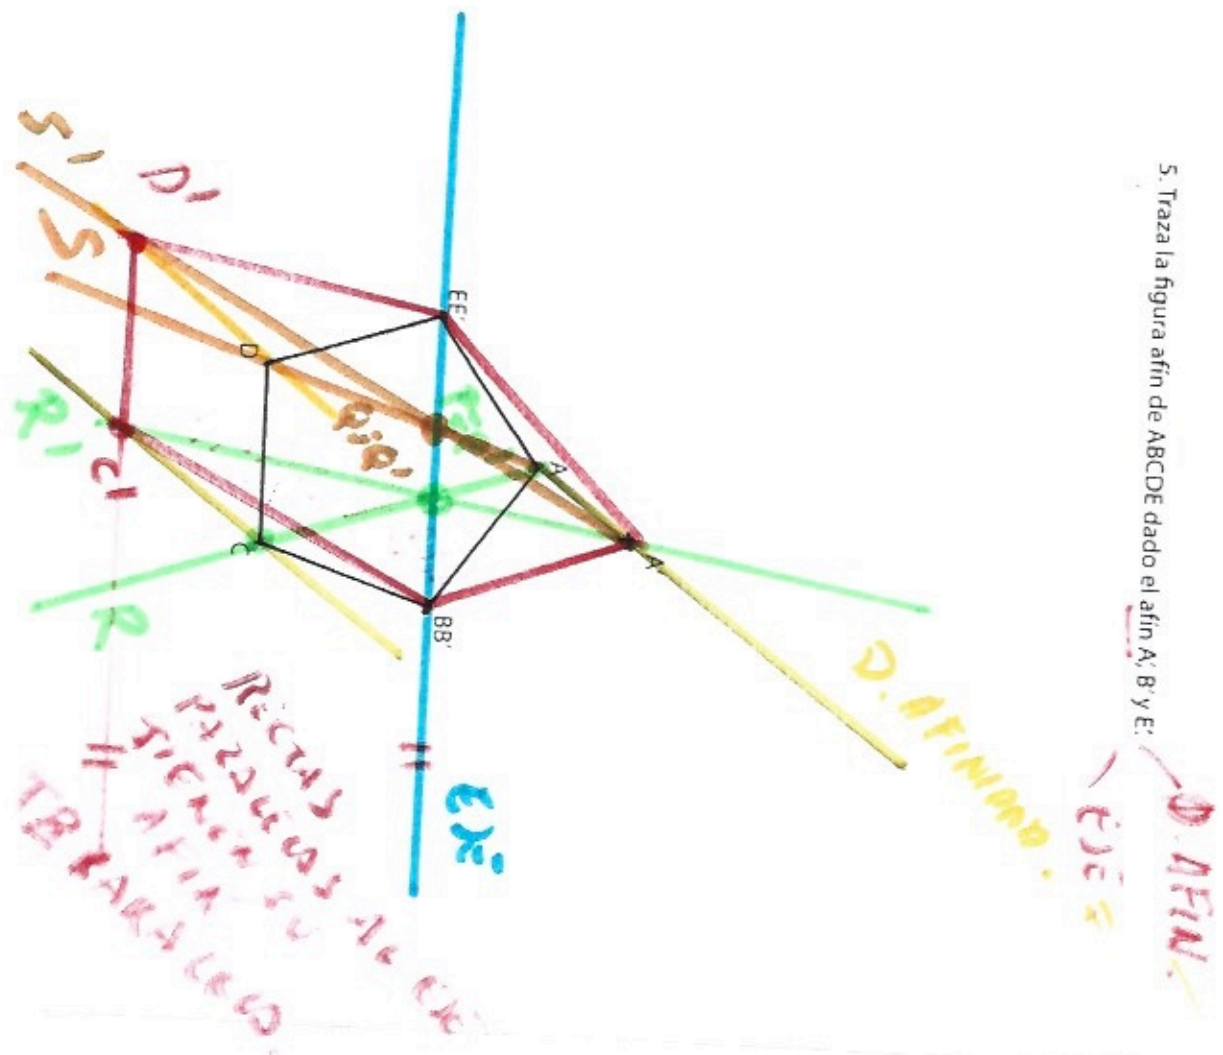 5. Traza la figura afín de ABCDE dado el afín A', B' y E'.
D. AFIN.
EJE
D. AFINIDAD.
EJE
A'
A
EE'
BB'
Q;Q'
D
C
D'
S'
S
R'
C'
R
RECTAS
PARALELAS AL EJE
TIENEN SU
AFIN
TB PARALELO